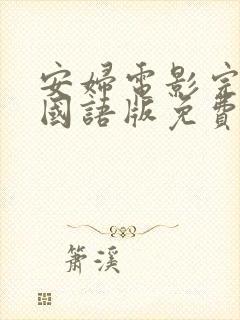 安婦電影完
國語版免費
簫溪